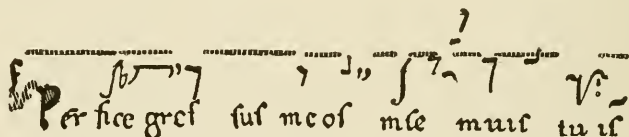 Per fice greſ ſuſ meoſ inſe mitiſ tu iſ